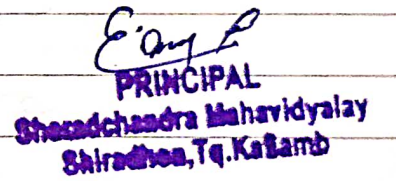 PRINCIPAL
Sharadchandra Mahavidyalay
Shiradhon, Tq. Kallamb